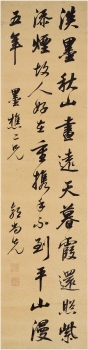 淡墨秋山畫遠天暮霞還照紫
添煙故人好在重攜手不到平山漫
五年
墨樵二兄
郭尚先